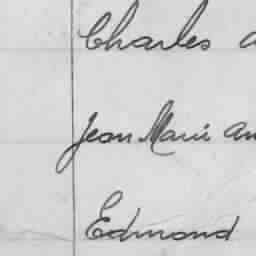 Charles
Jean Marie
Edmond